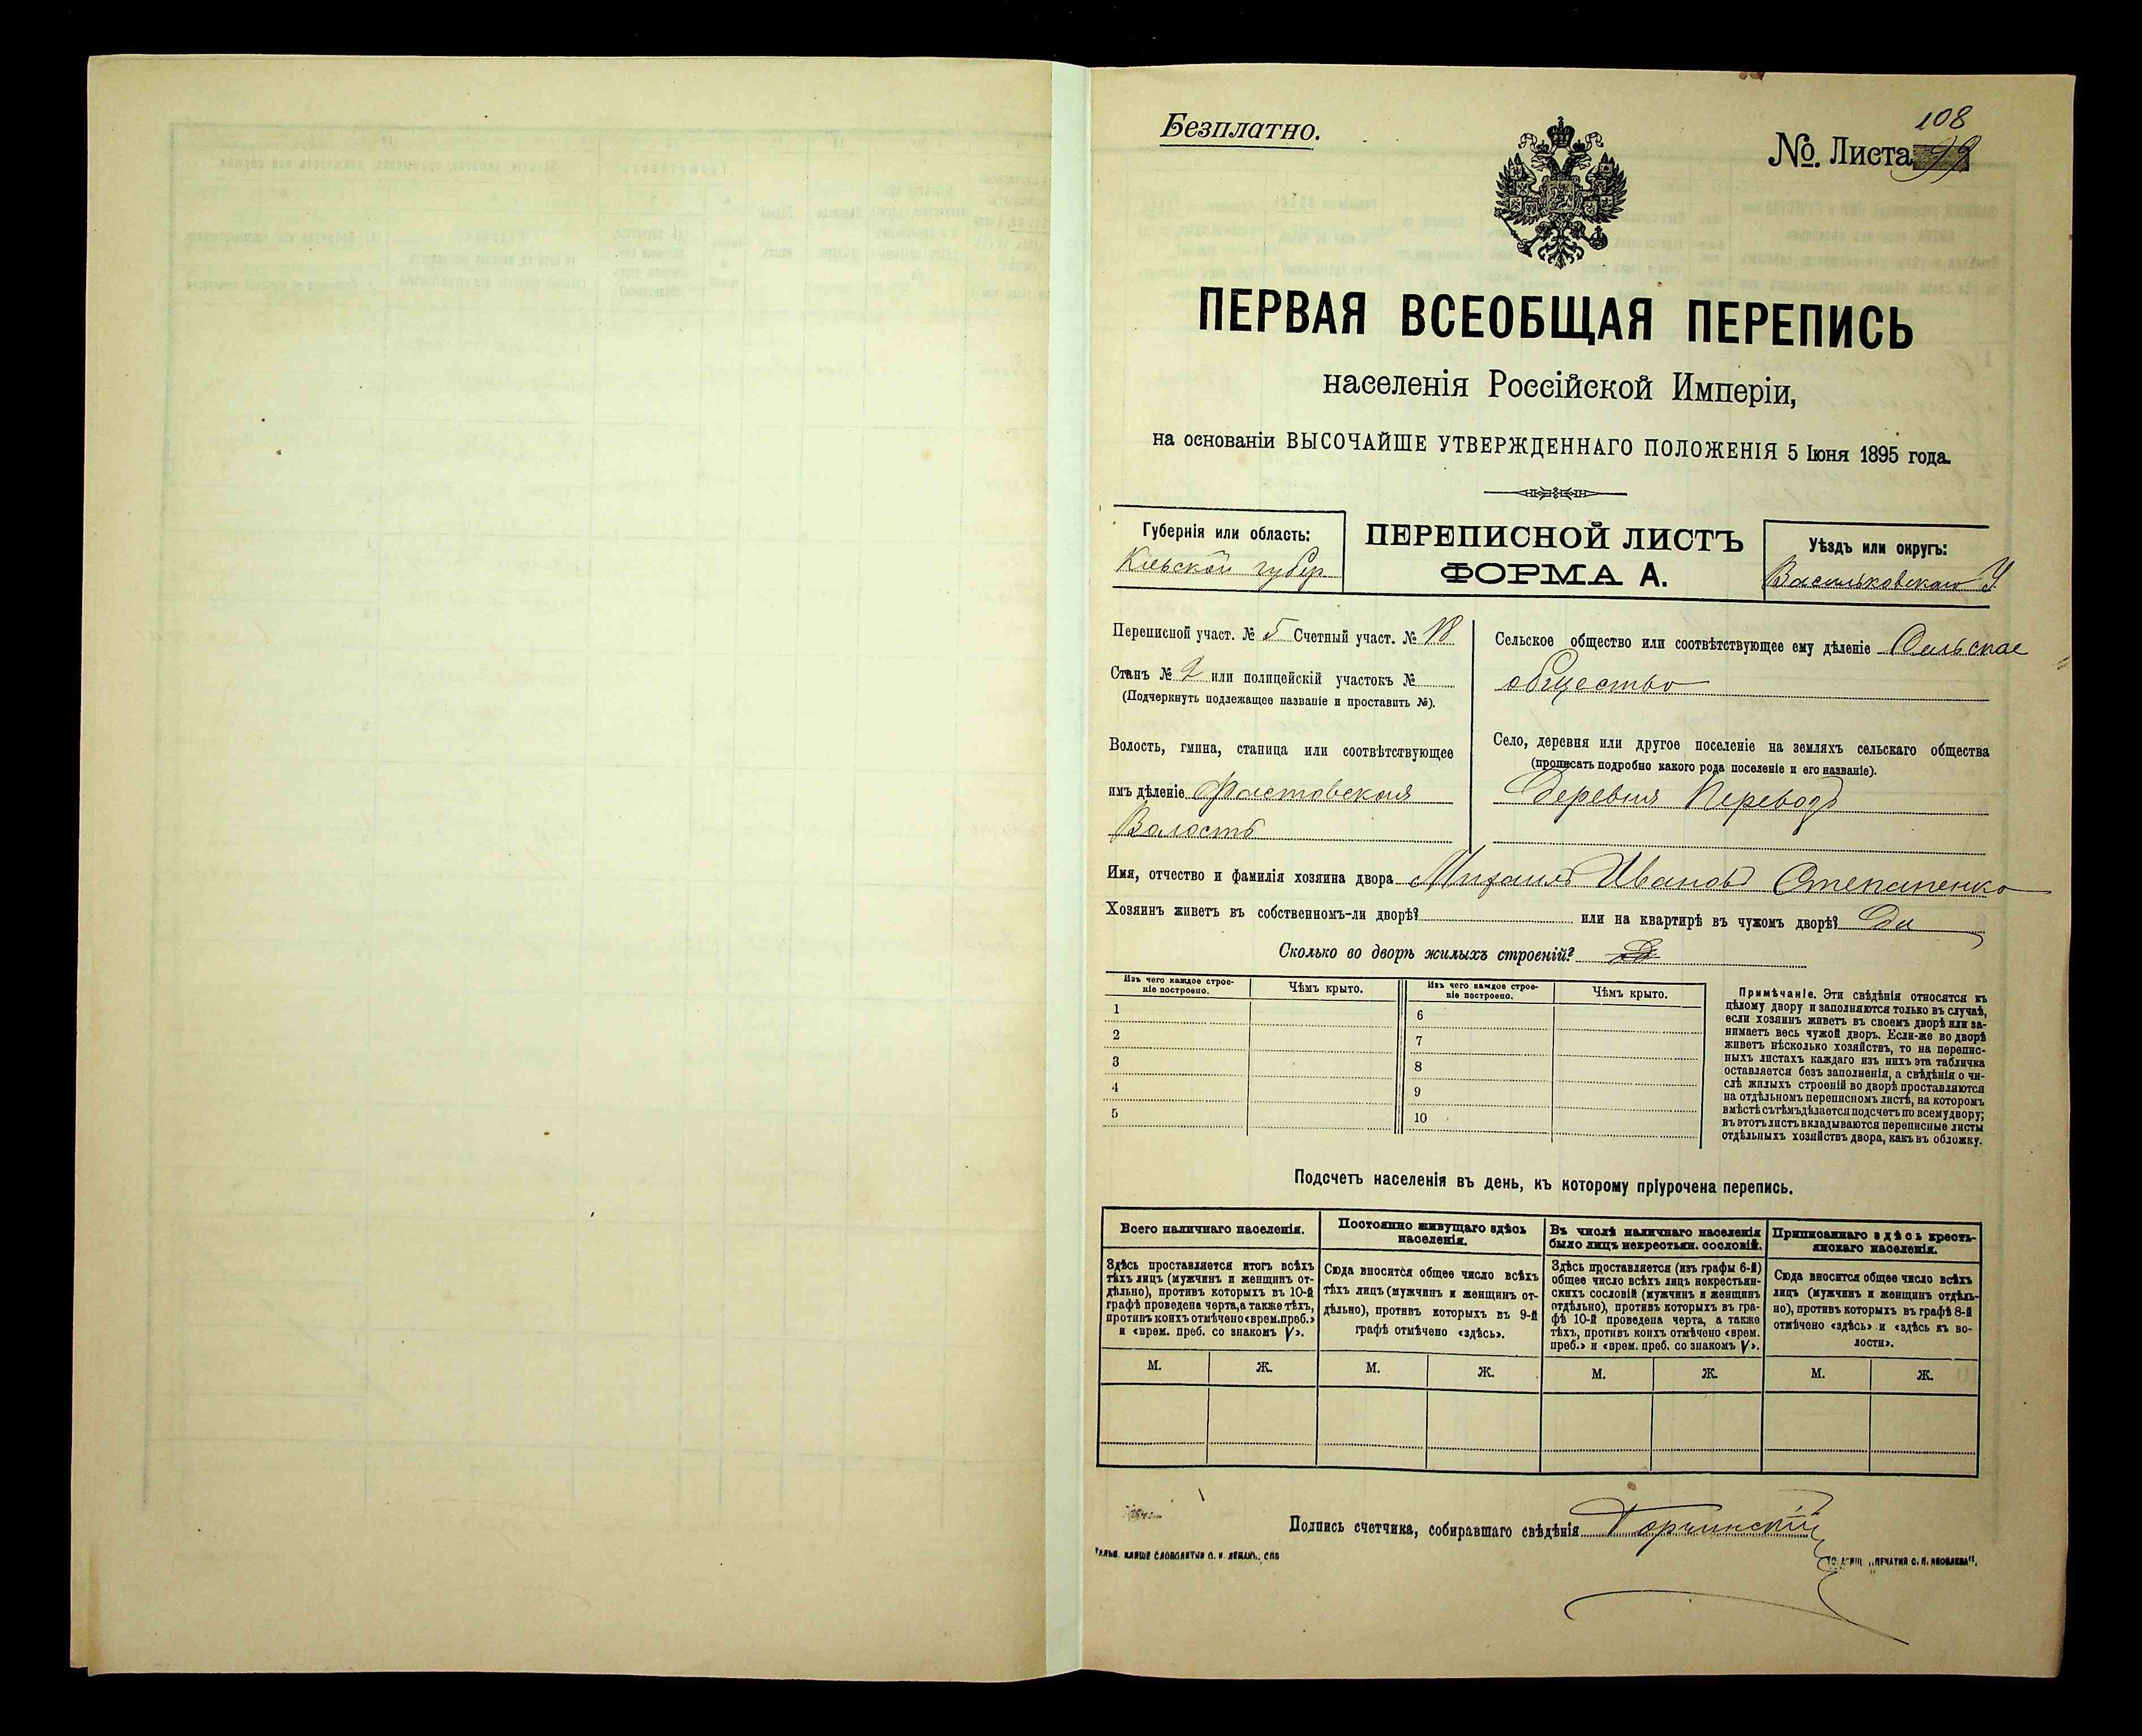 Безплатно.
108
№. Листа 99
ПЕРВАЯ ВСЕОБЩАЯ ПЕРЕПИСЬ
населенія Россійской Имперіи,
на основаніи ВЫСОЧАЙШЕ УТВЕРЖДЕННАГО ПОЛОЖЕНІЯ 5 Іюня 1895 года.
Губернія или область:
Кіевской губер
ПЕРЕПИСНОЙ ЛИСТЪ
ФОРМА А.
Уѣздъ или округъ:
Васильковскаго У.
Переписной участ. № 5 Счетный участ. № 18
Станъ № 2 или полицейскій участокъ №
(Подчеркнуть подлежащее названіе и проставить №).
Волость, гмина, станица или соотвѣтствующее
имъ дѣленіе Фастовская
Волость
Сельское общество или соотвѣтствующее ему дѣленіе Сельское
общество
Село, деревня или другое поселеніе на земляхъ сельскаго общества
(прописать подробно какого рода поселеніе и его названіе).
Деревня Переводъ
Имя, отчество и фамилія хозяина двора Михаилъ Ивановъ Степаненко
Хозяинъ живетъ въ собственномъ-ли дворѣ? или на квартирѣ въ чужомъ дворѣ? Да
Сколько во дворѣ жилыхъ строеній?
Изъ чего каждое строе-
ніе построено.
Чѣмъ крыто.
1
2
3
4
5
Изъ чего каждое строе-
ніе построено.
Чѣмъ крыто.
6
7
8
9
10
Примѣчаніе. Эти свѣдѣнія относятся къ
цѣлому двору и заполняются только въ случаѣ,
если хозяинъ живетъ въ своемъ дворѣ или за-
нимаетъ весь чужой дворъ. Если-же во дворѣ
живетъ нѣсколько хозяйствъ, то на перепис-
ныхъ листахъ каждаго изъ нихъ эта табличка
оставляется безъ заполненія, а свѣдѣнія о чи-
слѣ жилыхъ строеній во дворѣ проставляются
на отдѣльномъ переписномъ листѣ, на которомъ
вмѣстѣ съ тѣмъ дѣлается подсчетъ по всему двору;
въ этотъ листъ вкладываются переписные листы
отдѣльныхъ хозяйствъ двора, какъ въ обложку.
Подсчетъ населенія въ день, къ которому пріурочена перепись.
Всего наличнаго населенія.
Здѣсь проставляется итогъ всѣхъ
тѣхъ лицъ (мужчинъ и женщинъ от-
дѣльно), противъ которыхъ въ 10-й
графѣ проведена черта, а также тѣхъ,
противъ коихъ отмѣчено «врем. преб.»
и «врем. преб. со знакомъ V».
М. Ж.
Постоянно живущаго здѣсь
населенія.
Сюда вносится общее число всѣхъ
тѣхъ лицъ (мужчинъ и женщинъ от-
дѣльно), противъ которыхъ въ 9-й
графѣ отмѣчено «здѣсь».
М. Ж.
Въ числѣ наличнаго населенія
было лицъ некрестьян. сословій.
Здѣсь проставляется (изъ графы 6-й)
общее число всѣхъ лицъ некрестьян-
скихъ сословій (мужчинъ и женщинъ
отдѣльно), противъ которыхъ въ гра-
фѣ 10-й проведена черта, а также
тѣхъ, противъ коихъ отмѣчено «врем.
преб.» и «врем. преб. со знакомъ V».
М. Ж.
Приписаннаго здѣсь кресть-
янскаго населенія.
Сюда вносится общее число всѣхъ
лицъ (мужчинъ и женщинъ отдѣль-
но), противъ которыхъ въ графѣ 8-й
отмѣчено «здѣсь» и «здѣсь къ во-
лости».
М. Ж.
Подпись счетчика, собиравшаго свѣдѣнія Горчинскій
КЛИШЕ СЛОВОЛИТНИ О. И. ЛЕМАНЪ, СПБ
„ПЕЧАТНИ С. П. ЯКОВЛЕВА".